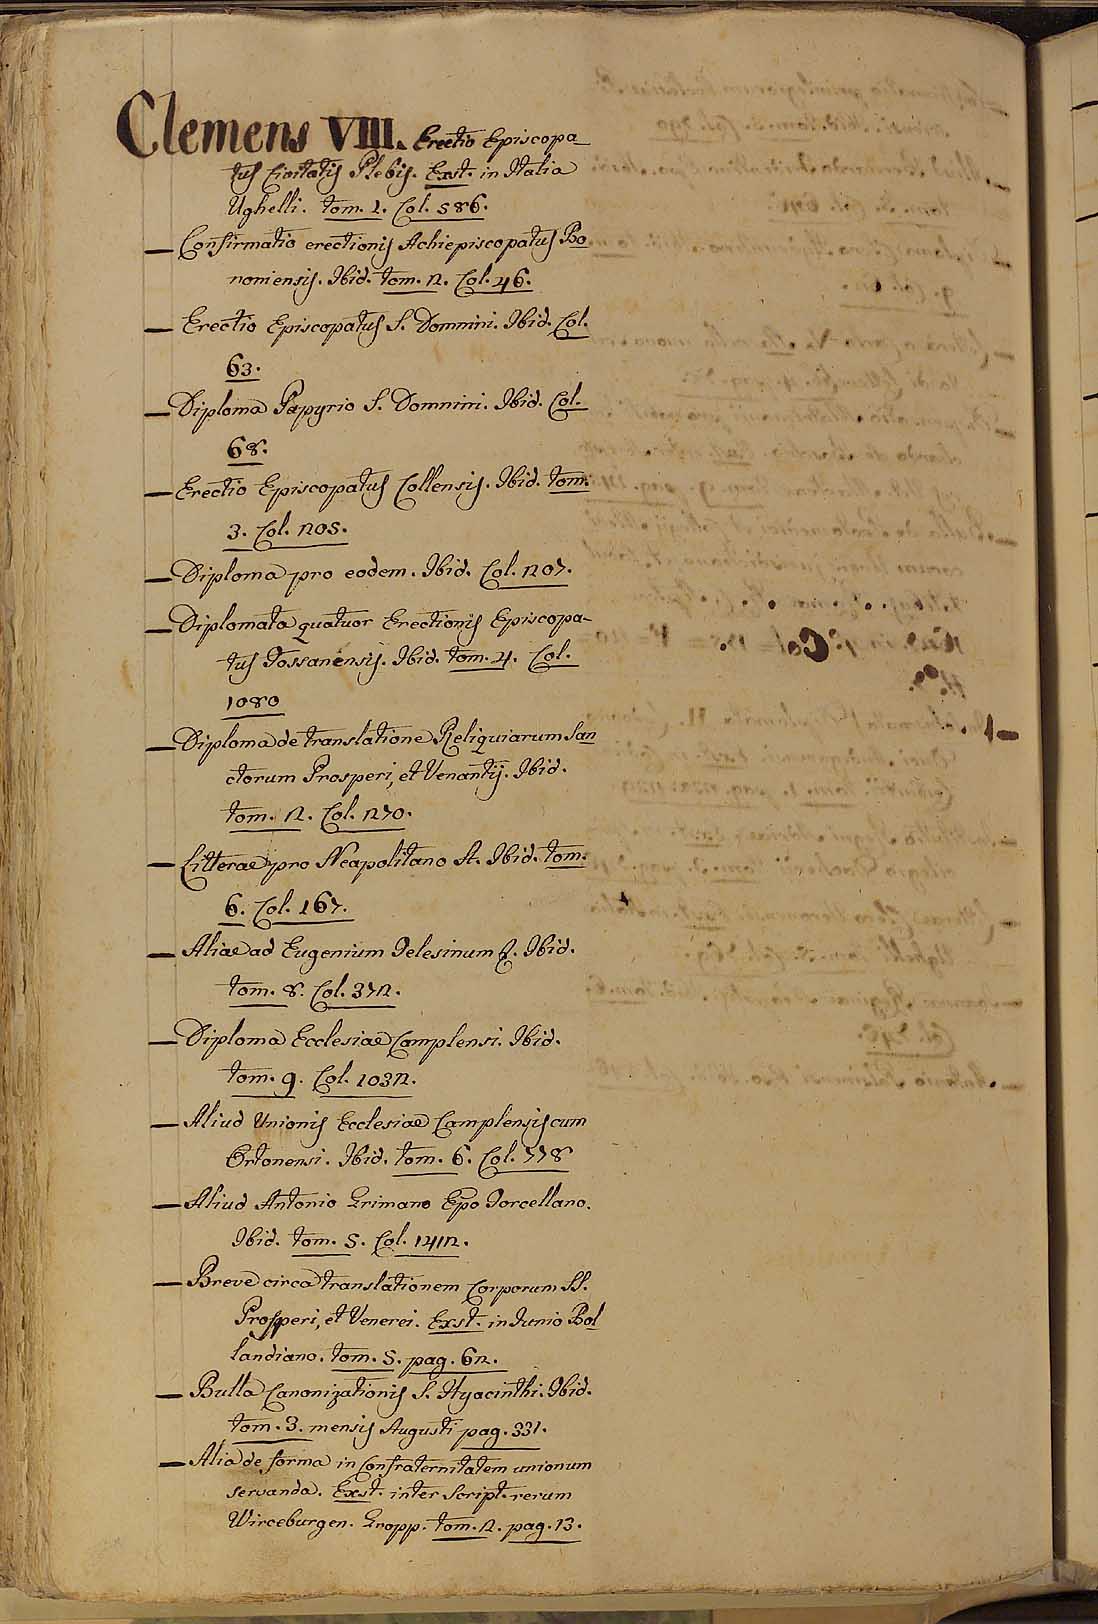 Clemens VIII. Erectio Episcopa-
tus Civitatis Plebis. Exst. in Italia
Ughelli. tom. 1. Col. 586.
— Confirmatio erectionis Achiepiscopatus Bo
noniensis. Ibid. tom. 2. Col. 46.
— Erectio Episcopatus S. Domnini. Ibid. Col.
63.
— Diploma Papyrio S. Domnini. Ibid. Col.
68.
— Erectio Episcopatus Collensis. Ibid. tom.
3. Col. 205.
— Diploma pro eodem. Ibid. Col. 207.
— Diplomata quatuor Erectionis Episcopa-
tus Fossanensis. Ibid. tom. 4. Col.
1080
— Diploma de translatione Reliquiarum San
ctorum Prosperi, et Venantij. Ibid.
tom. 2. Col. 270.
— Litterae pro Neapolitano A. Ibid. tom.
6. Col. 167.
— Aliae ad Eugenium Telesinum E. Ibid.
tom. 8. Col. 372.
— Diploma Ecclesiae Camplensi. Ibid.
tom. 9. Col. 1032.
— Aliud Unionis Ecclesiae Camplensis cum
Ortonensi. Ibid. tom. 6. Col. 778
— Aliud Antonio Grimano Epo Torcellano.
Ibid. tom. 5. Col. 1412.
— Breve circa translationem Corporum SS.
Prosperi, et Venerei. Exst. in Junio Bol
landiano. tom. 5. pag. 62.
— Bulla Canonizationis S. Hyacinthi. Ibid.
tom. 3. mensis Augusti pag. 331.
— Alia de forma in Confraternitatem unionum
servanda. Exst. inter Script. rerum
Wirceburgen. Gropp. tom. 2. pag. 13.